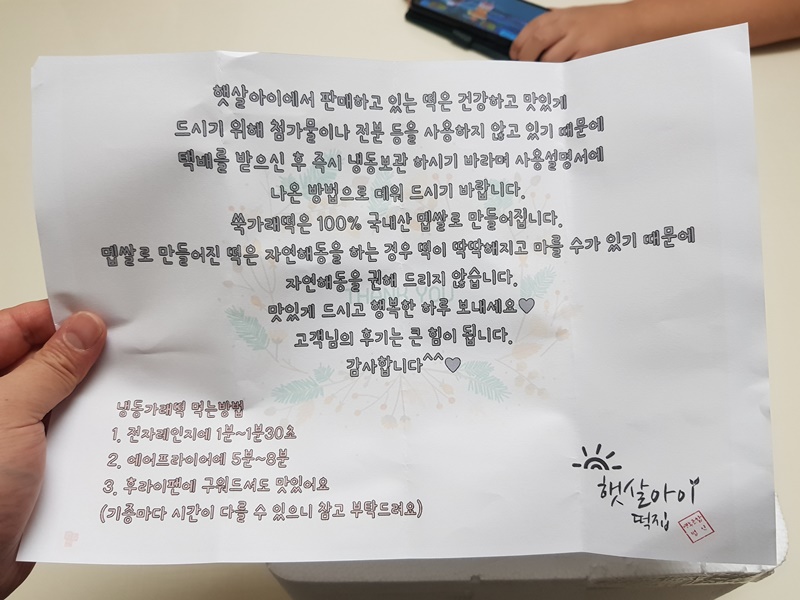 햇살아이에서 판매하고 있는 떡은 건강하고 맛있게
드시기 위해 첨가물이나 전분 등을 사용하지 않고 있기 때문에
택배를 받으신 후 즉시 냉동보관 하시기 바라며 사용설명서에
나온 방법으로 데워 드시기 바랍니다.
쑥가래떡은 100% 국내산 멥쌀로 만들어집니다.
멥쌀로 만들어진 떡은 자연해동을 하는 경우 떡이 딱딱해지고 마를 수가 있기 때문에
자연해동을 권해 드리지 않습니다.
THANK YOU
맛있게 드시고 행복한 하루 보내세요♡
고객님의 후기는 큰 힘이 됩니다.
감사합니다^^♡
냉동가래떡 먹는방법
1. 전자레인지에 1분~1분30초
2. 에어프라이어에 5분~8분
3. 후라이팬에 구워드셔도 맛있어요
(기종마다 시간이 다를 수 있으니 참고 부탁드려요)
햇살아이
떡집